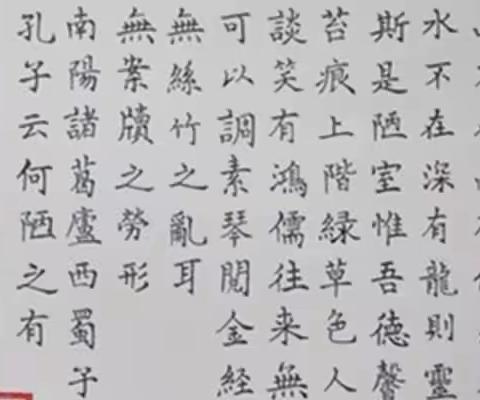 水不在深有龍則靈
斯是陋室惟吾德馨
苔痕上階緑草色人
談笑有鴻儒往来無
可以調素琴閲金経
無絲竹之亂耳
無案牘之勞形
南陽諸葛廬西蜀子
孔子云何陋之有